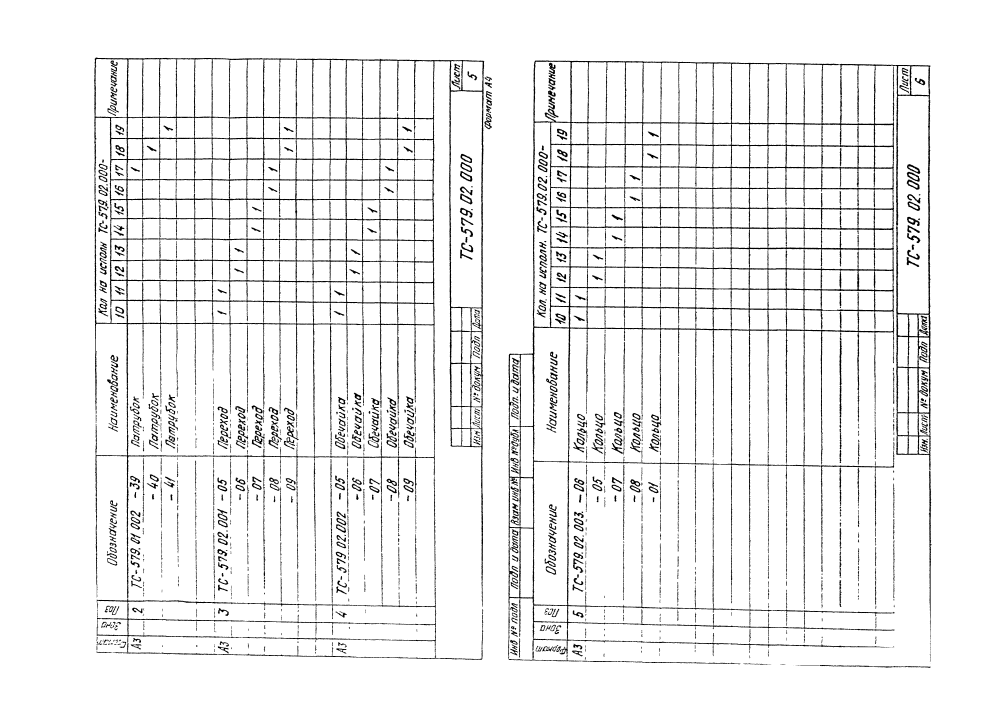 Формат Зона Поз Обозначение Наименование Кол на исполн ТС-579.02.000- Примечание
10 11 12 13 14 15 16 17 18 19
А3 2 ТС-579.01.002 -39 Патрубок 1
-40 Патрубок 1
-41 Патрубок 1
А3 3 ТС-579.02.001 -05 Переход 1 1
-06 Переход 1 1
-07 Переход 1 1
-08 Переход 1 1
-09 Переход 1 1
А3 4 ТС-579.02.002 -05 Обечайка 1 1
-06 Обечайка 1 1
-07 Обечайка 1 1
-08 Обечайка 1 1
-09 Обечайка 1 1
Изм Лист № докум Подп Дата
ТС-579.02.000
Лист
5
Формат А4
Инв № подл Подп и дата Взам инв № Инв № дубл Подп. и дата
Формат Зона Поз Обозначение Наименование Кол. на исполн. ТС-579.02.000- Примечание
10 11 12 13 14 15 16 17 18 19
А3 5 ТС-579.02.003. -06 Кольцо 1 1
-05 Кольцо 1 1
-07 Кольцо 1 1
-08 Кольцо 1 1
-01 Кольцо 1 1
Изм Лист № докум Подп Дата
ТС-579.02.000
Лист
6